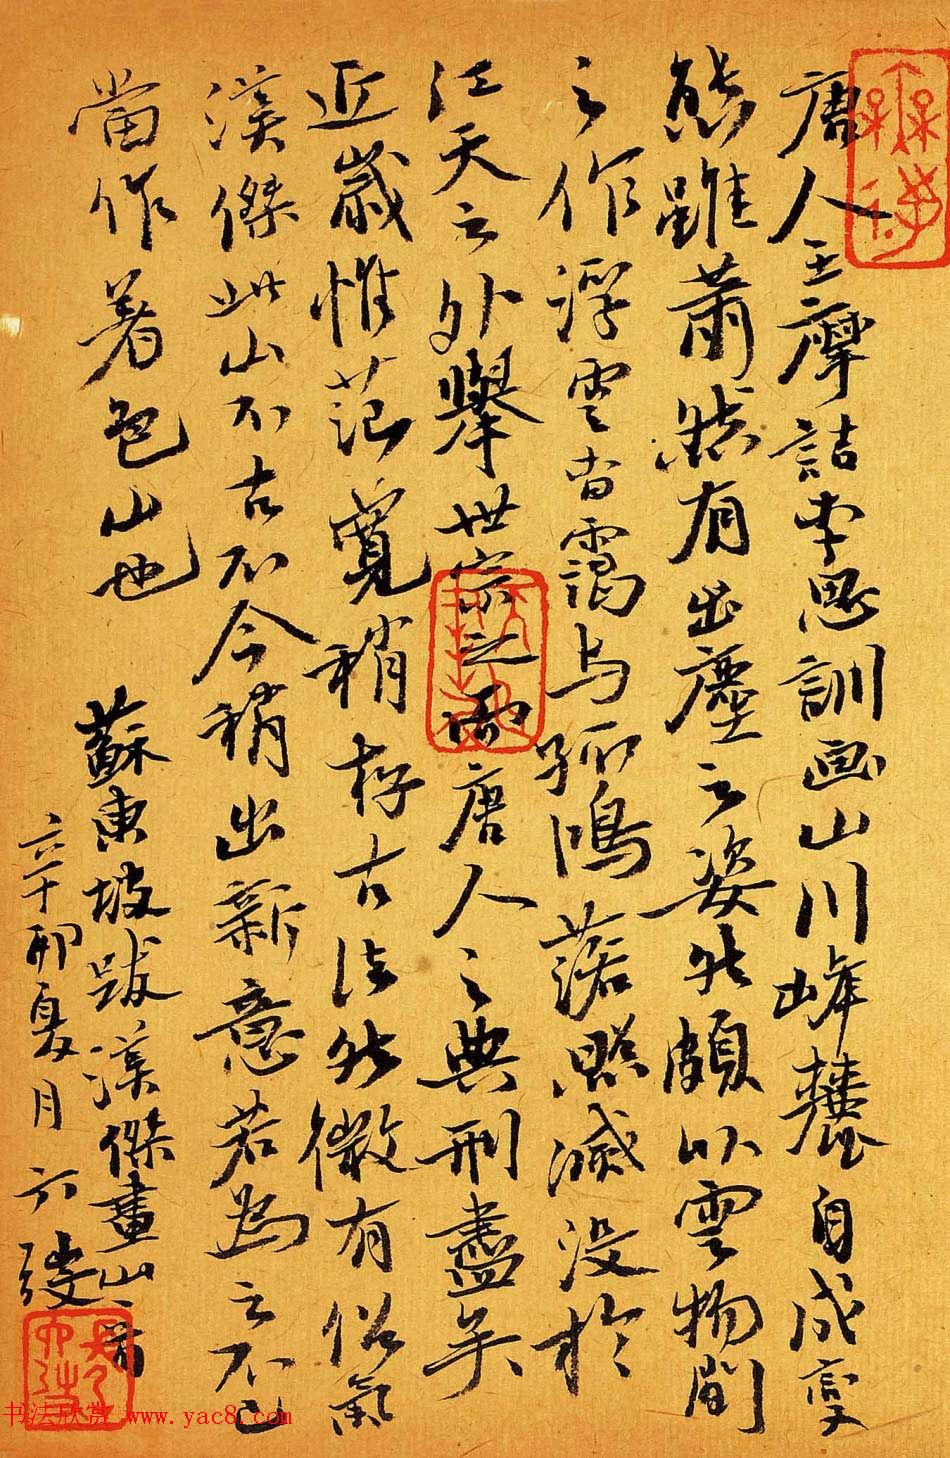 唐人王摩詰李思訓画山川峰麓自成變
態雖蕭然有出塵之姿然頗以雲物間
之作浮雲杳靄与孤鴻落照滅沒於
江天之外舉世宗之而唐人之典刑盡矣
近歲惟范寬稍存古法然微有俗氣
漢傑此山不古不今稍出新意若為之不已
當作著色山也
蘇東坡跋漢傑畫山
六十卯夏月六
书法欣赏 www.yac8.com